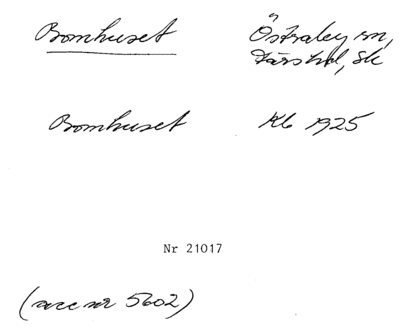 Bomhuset Östraby sn,
Färs hd, Sk
Bomhuset Kb 1925
Nr 21017
(acc nr 5602)